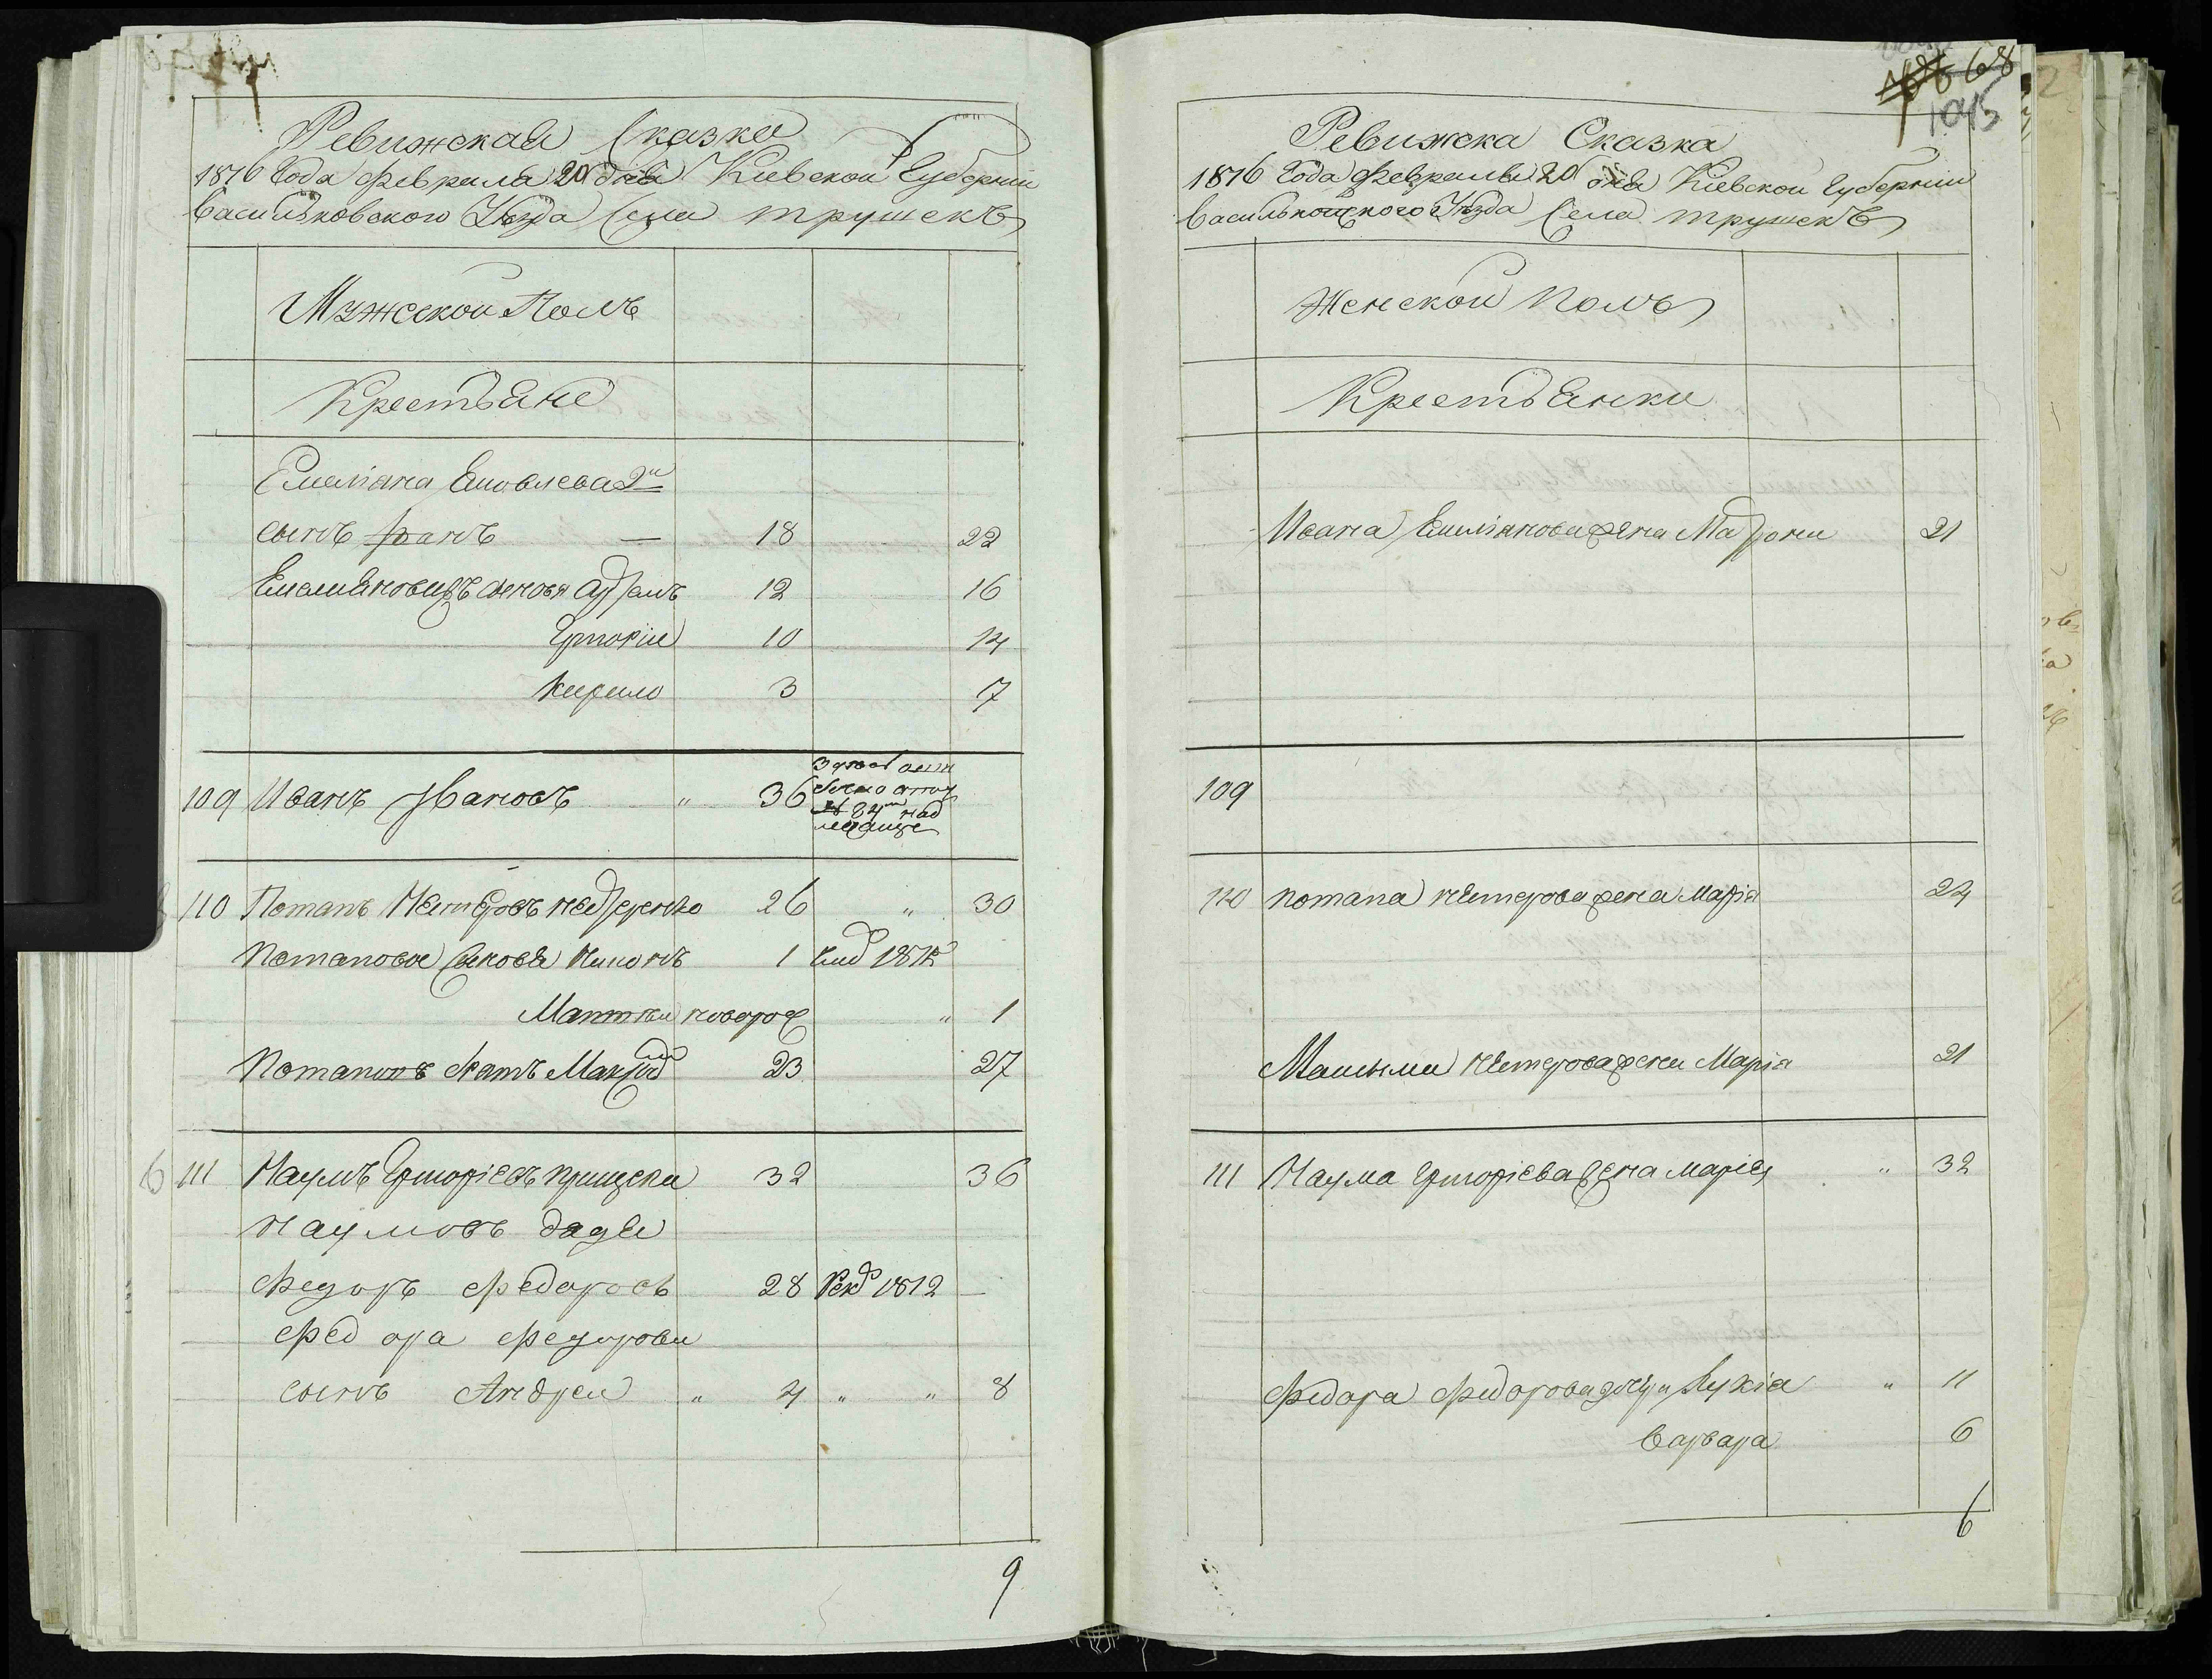 Ревижская Сказка
1816 Года Февраля 20 дня Киевской Губернии
Васильковского Уезда Села трушекъ
Мужской Полъ
Крестьяне
Емелiана Яковлева 2й
сынъ Иванъ — 18 22
Емелияновы сыновя 12 16
Григорiй 10 14
Кирило 3 7
109 Иванъ Ивановъ " 36
110 Потапъ Нестеровъ 26 " 30
Потаповы сыновя 1 1812
Маттвей новорож " 1
Потаповъ братъ Максимъ 23 27
6 111 Наумъ Григорiевъ 32 36
Наумовъ дядя
Федоръ Федоровъ 28 Рекр 1812 —
Федора Федорова
сынъ Андрей " 4 " " 8
9
68
1045
Ревижска Сказка
1816 Года Февраля 20 дня Киевской Губернии
Васильковского Уезда Села трушекъ
Женской Полъ
Крестьянки
Ивана Емелiянова жена Матрона 21
109
110 Потапа Нестерова жена Марiя 24
Максыма Нестерова жена Марiя 21
111 Наума Григорiева жена Марiя " 32
Федора Федорова дочери Лукiя " 11
Варвара 6
6